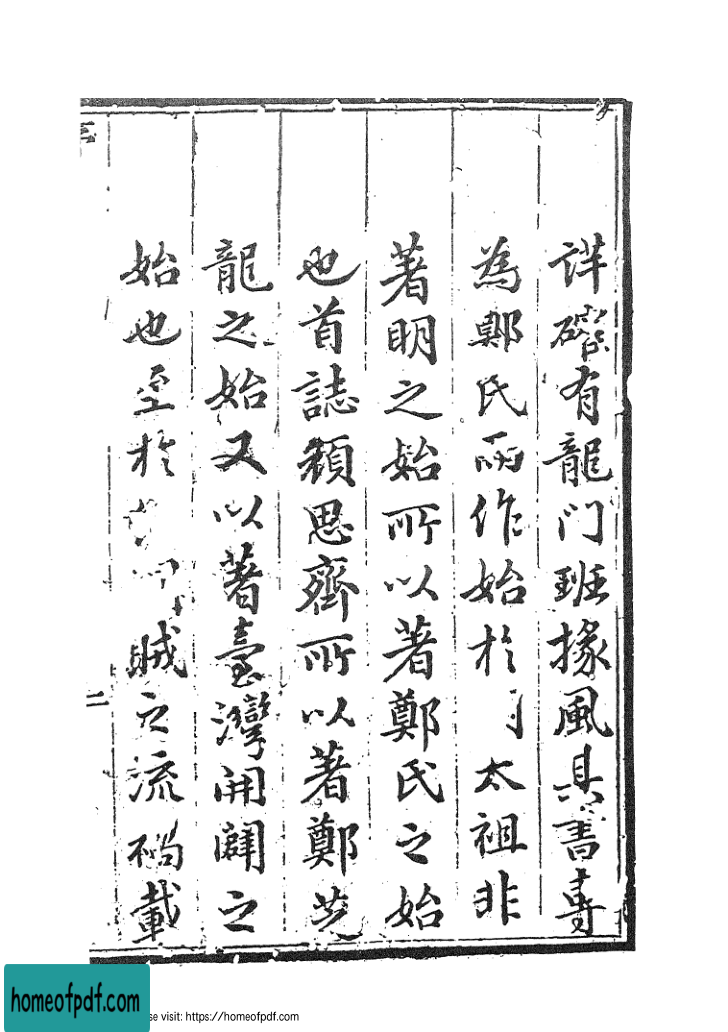 詳礭有龍门班掾風其書專
為鄭氏而作始於太祖非
著明之始所以著鄭氏之始
也首誌顏思齊所以著鄭芝
龍之始又以著臺灣開闢之
始也至於賊之流禍載
二
homeofpdf.com
se visit: https://homeofpdf.com